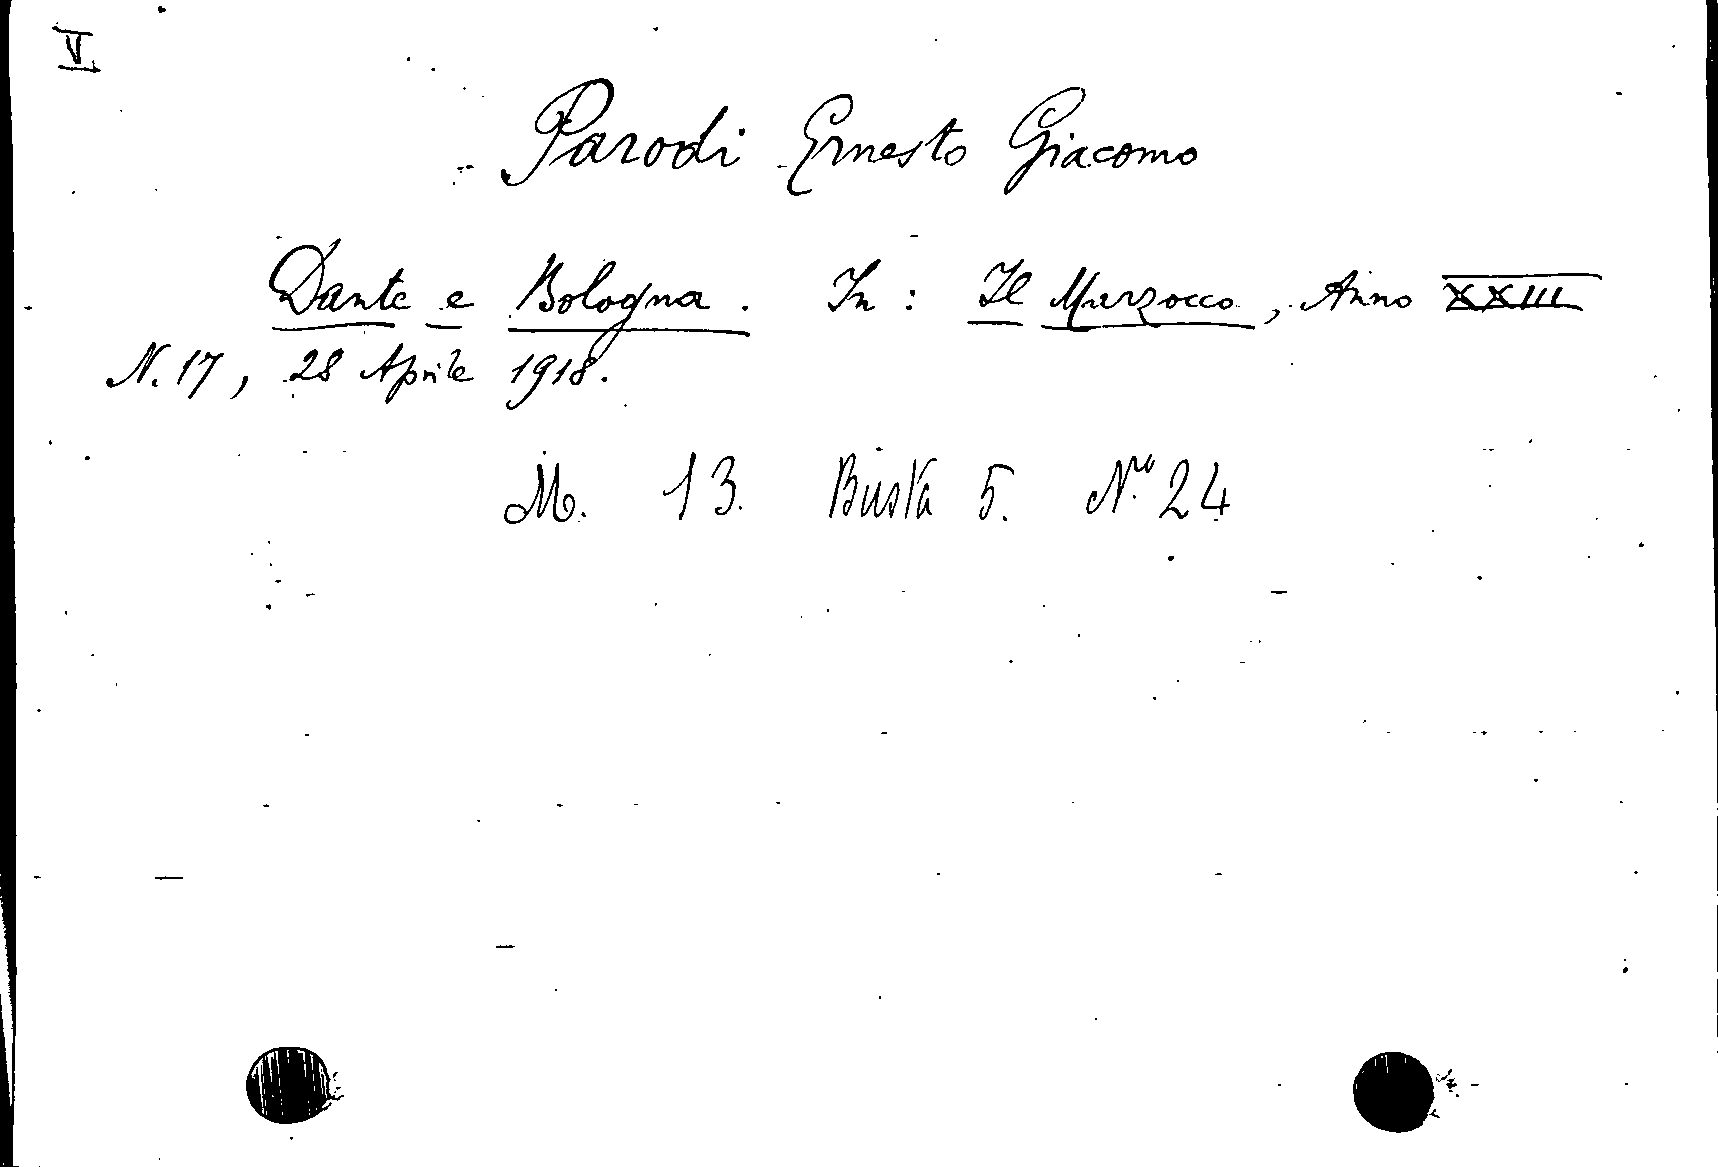 V
Parodi Ernesto Giacomo
Dante e Bologna. In: Il Marzocco, Anno XXIII
N. 17, 28 Aprile 1918.
M. 13. Busta 5. Nº 24